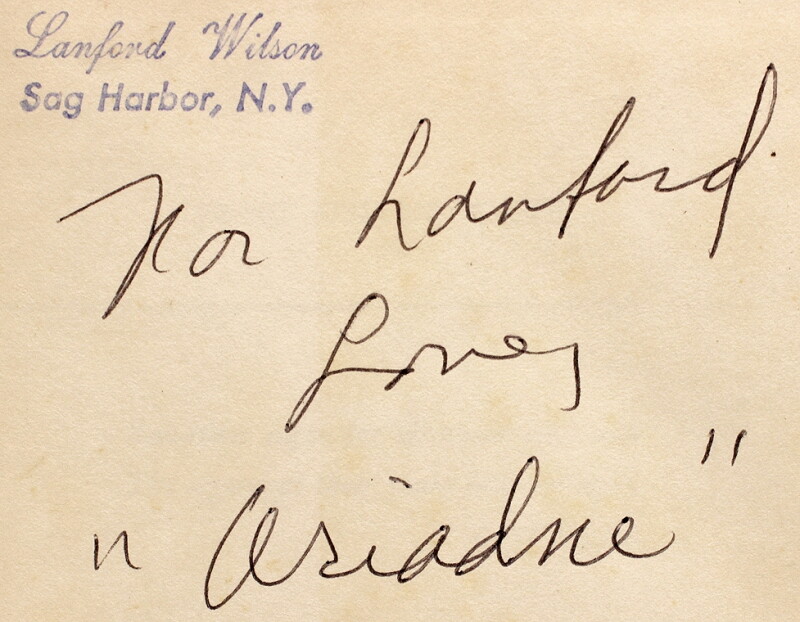 Lanford Wilson
Sag Harbor, N.Y.
For Lanford
Love,
"Ariadne"